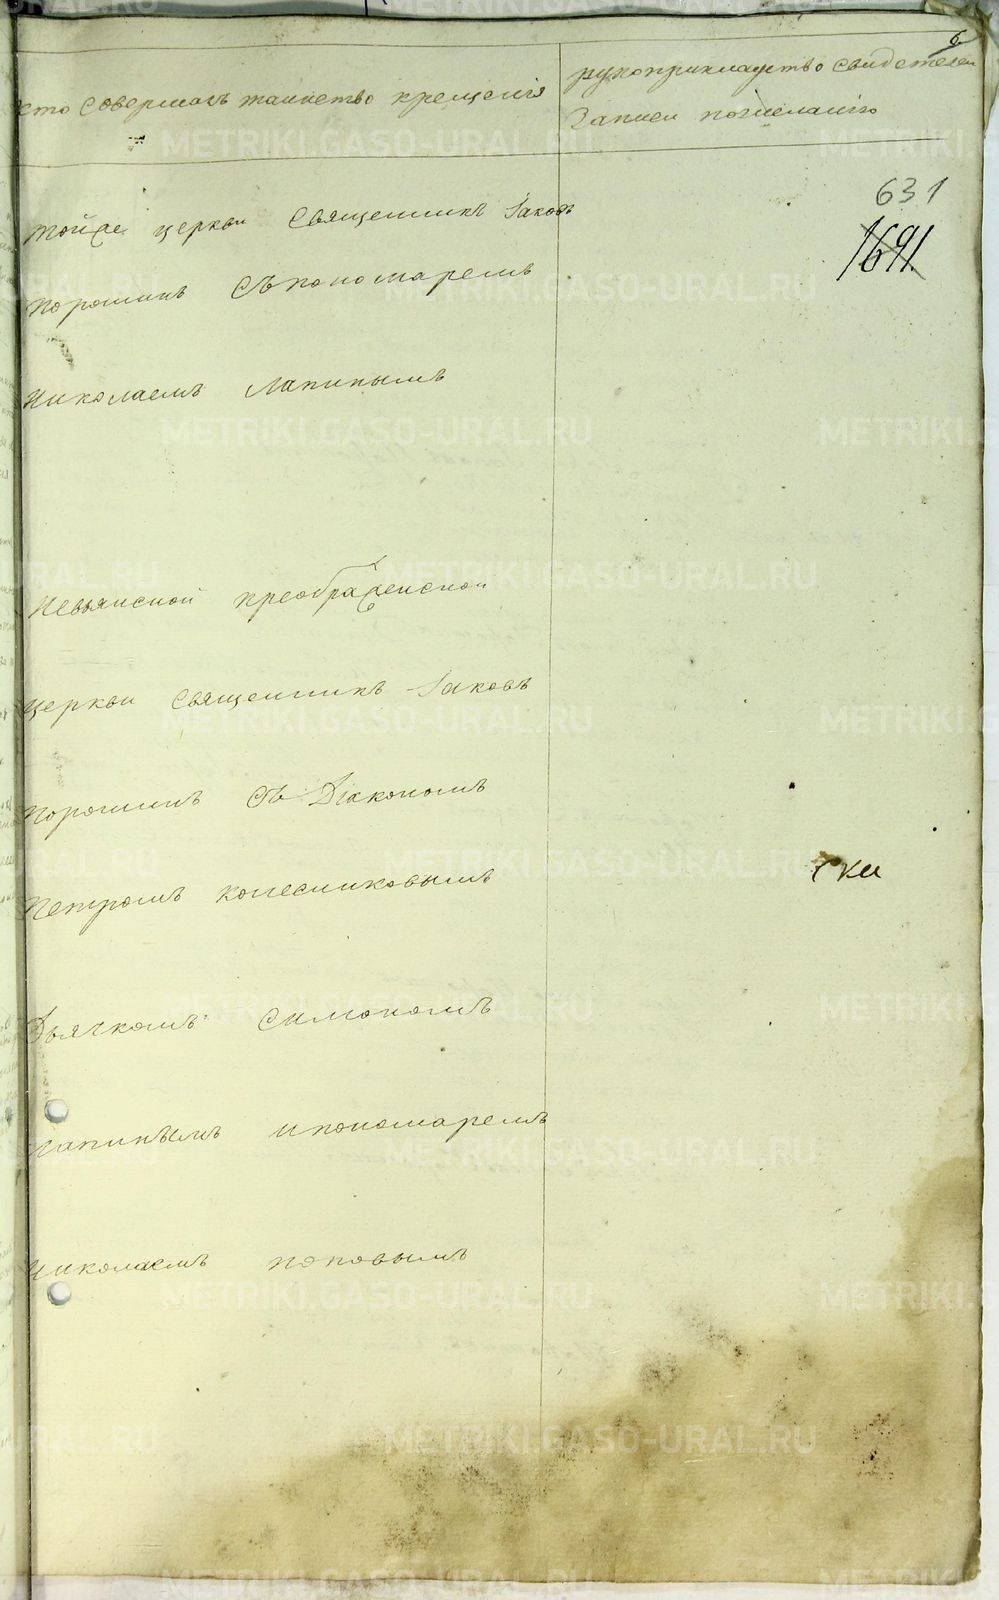 6
кто совершалъ таинство крещенія
рукоприкладство свидетелей
записи по желанію
631
1691
тойже церкви Священникъ Іаковъ
Порошинъ съ пономаремъ
Николаемъ Лапинымъ
Невьянской преображенской
церкви священникъ Іаковъ
Порошинъ съ Діакономъ
Петромъ колесниковымъ
ски
Дьячкомъ симономъ
Лапинымъ и пономаремъ
Николаемъ поповымъ
METRIKI.GASO-URAL.RU